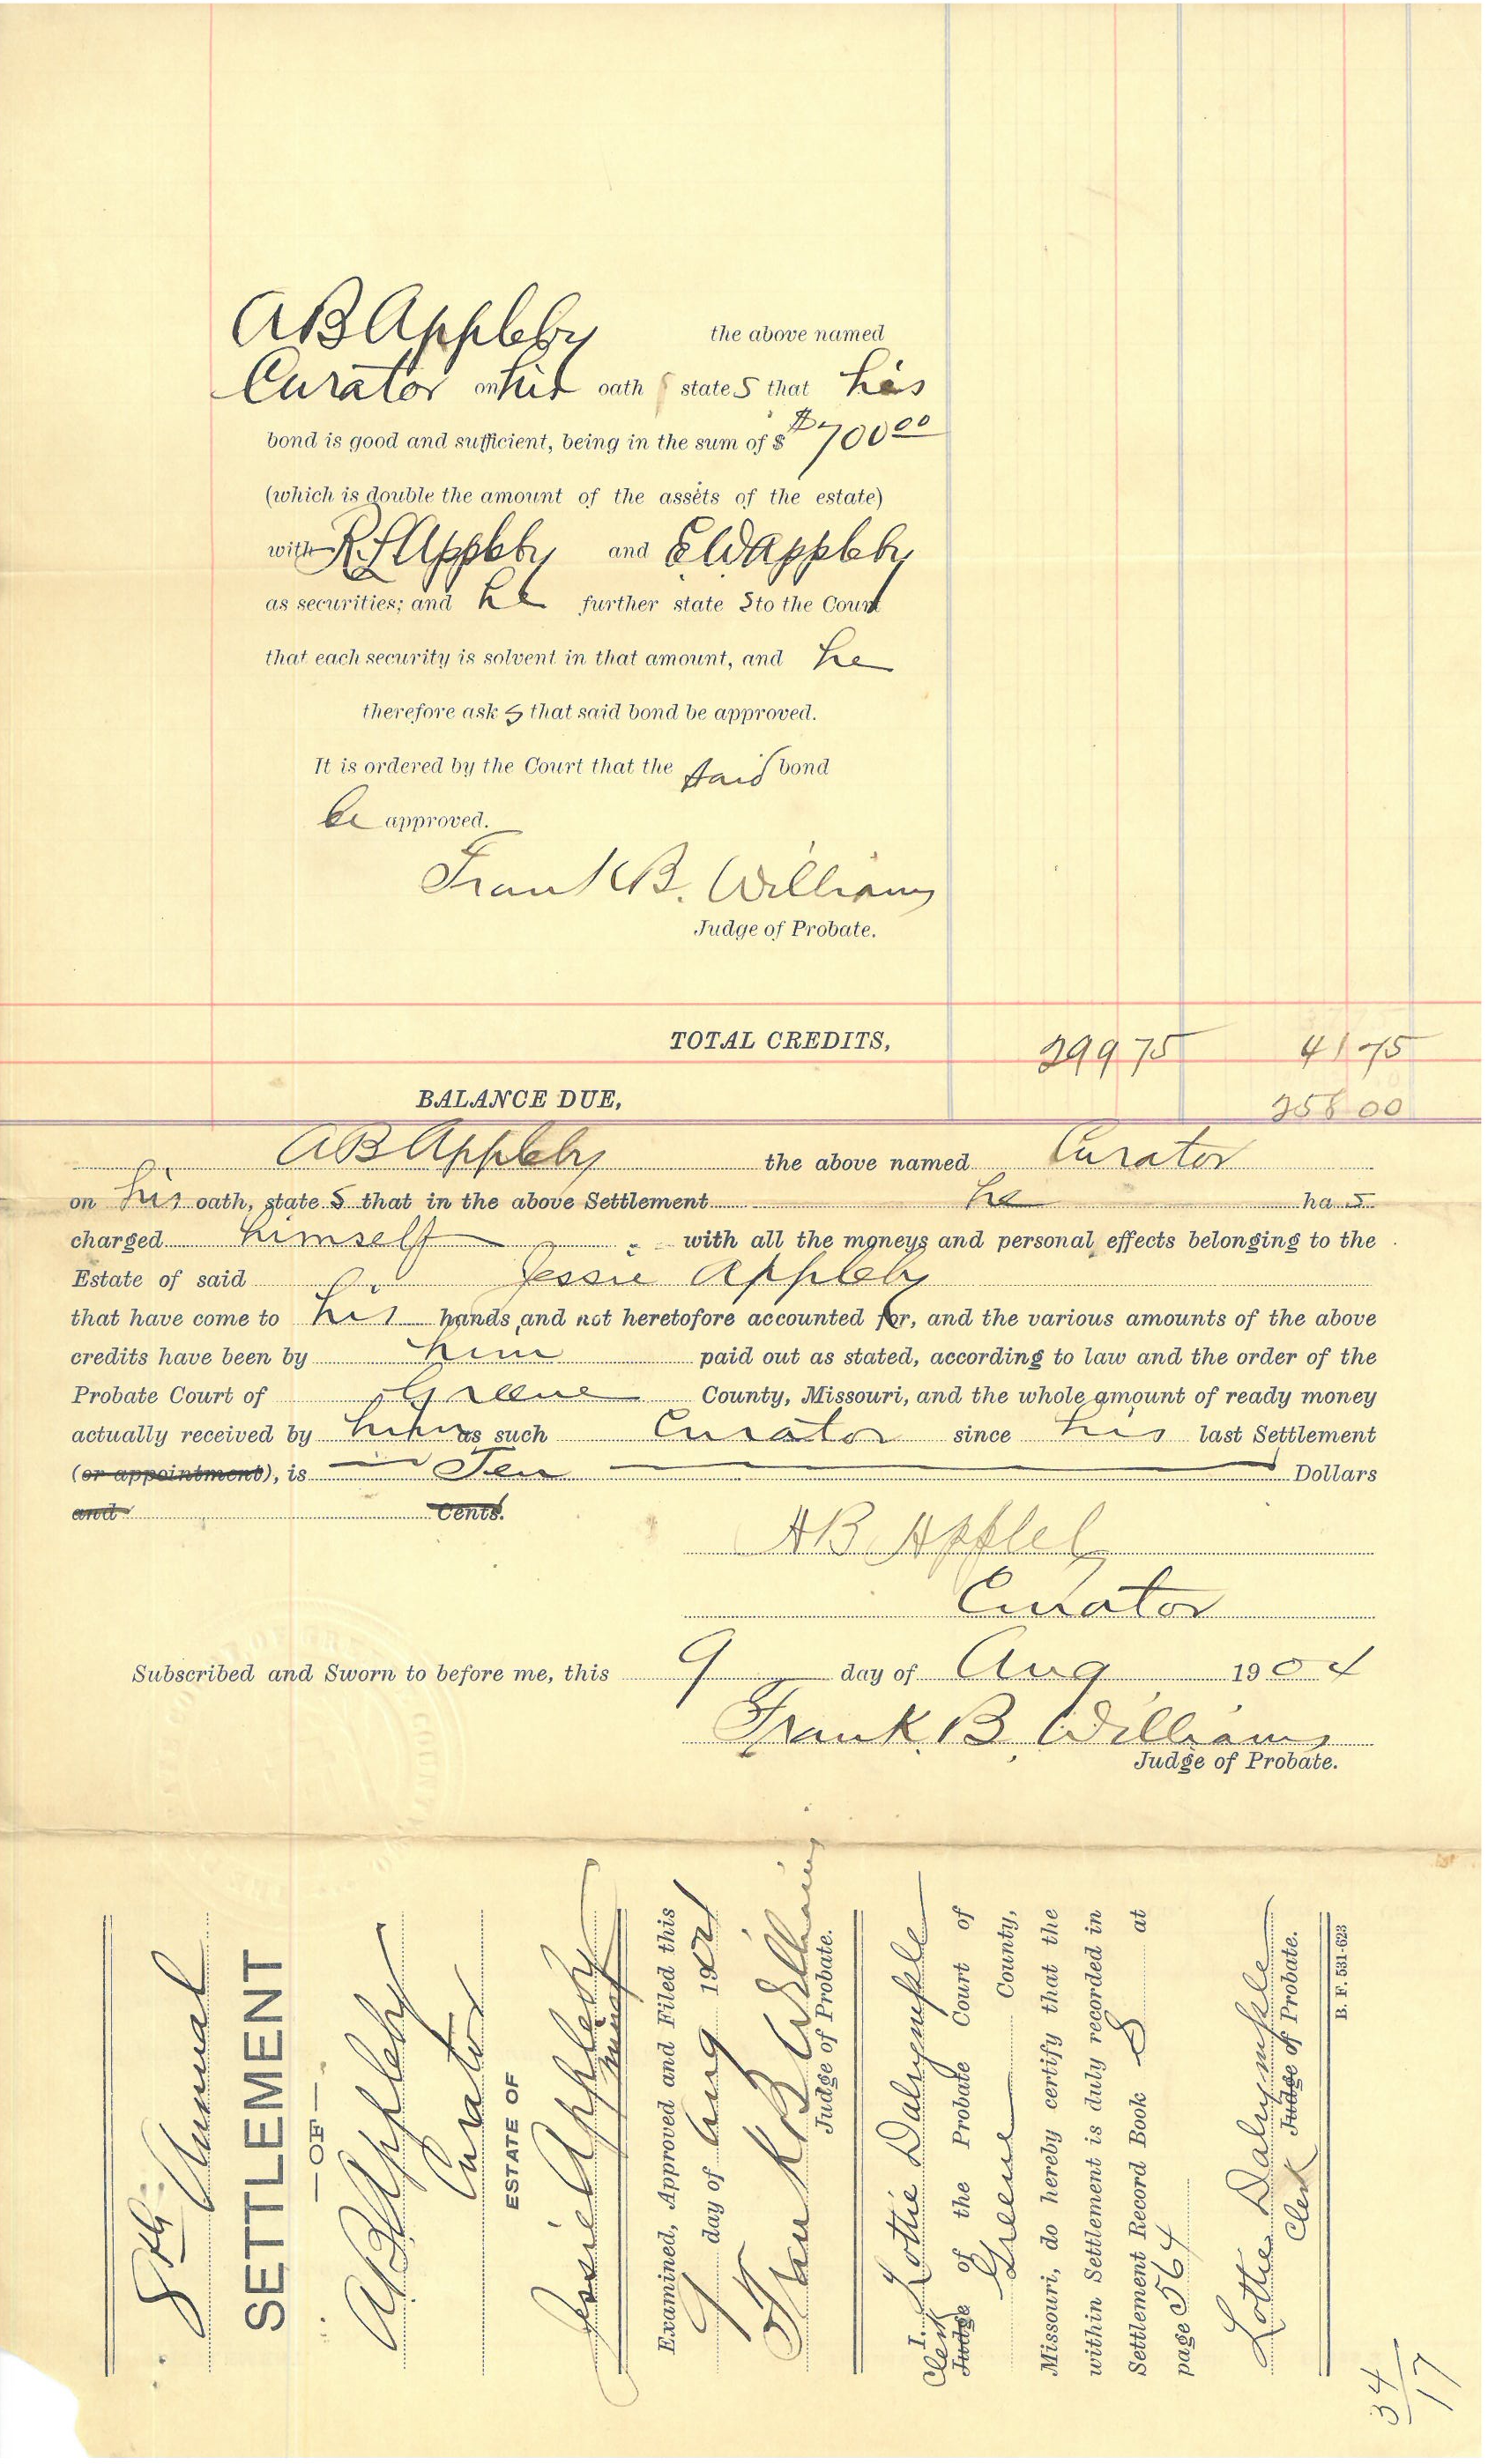 A B Appleby the above named
Curator on his oath states that his
bond is good and sufficient, being in the sum of $ $700 00
(which is double the amount of the assets of the estate)
with R. L Appleby and E W Appleby
as securities; and he further states to the Court
that each security is solvent in that amount, and he
therefore asks that said bond be approved.
It is ordered by the Court that the said bond
be approved.
Frank B. Williams
Judge of Probate.
TOTAL CREDITS, 299 75 41 75
BALANCE DUE, 258 00
A B Appleby the above named Curator
on his oath, states that in the above Settlement he has
charged himself with all the moneys and personal effects belonging to the
Estate of said Jessie Appleby
that have come to his hands and not heretofore accounted for, and the various amounts of the above
credits have been by him paid out as stated, according to law and the order of the
Probate Court of Greene County, Missouri, and the whole amount of ready money
actually received by him as such Curator since his last Settlement
(or appointment), is Ten Dollars
and Cents.
A B Appleby
Curator
Subscribed and Sworn to before me, this 9 day of Aug 1904
Frank. B. Williams
Judge of Probate.
8th Annual
SETTLEMENT
—OF—
A B Appleby
Curator
ESTATE OF
Jessie Appleby
minor
Examined, Approved and Filed this
9 day of Aug 1904
Frank B Williams
Judge of Probate.
I. Lottie Dalrymple
Clerk Judge of the Probate Court of
Greene County,
Missouri, do hereby certify that the
within Settlement is duly recorded in
Settlement Record Book S at
page 564
Lottie Dalrymple
Clerk Judge of Probate.
B. F. 531-623
34/17